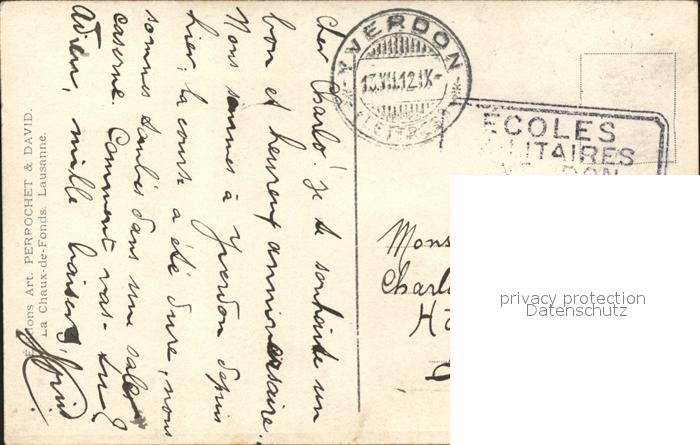 Cher Charlo! Je te souhaite un
bon et heureux anniversaire.
Nous sommes à Yverdon depuis
hier, la course a été dure, nous
sommes tombés dans une sale
caserne. Comment vas-tu?
Adieu, mille baisers,
Editions Art. PERROCHET & DAVID.
La Chaux-de-Fonds. Lausanne.
YVERDON
13.VII.12.IX-
(LETTRES)
ECOLES
MILITAIRES
YVERDON
Mons
Charl
privacy protection
Datenschutz